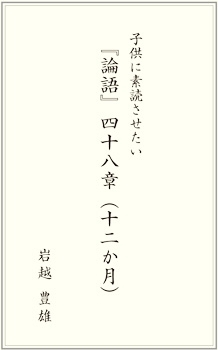 子供に素読させたい
『論語』四十八章(十二か月)
岩越 豊雄